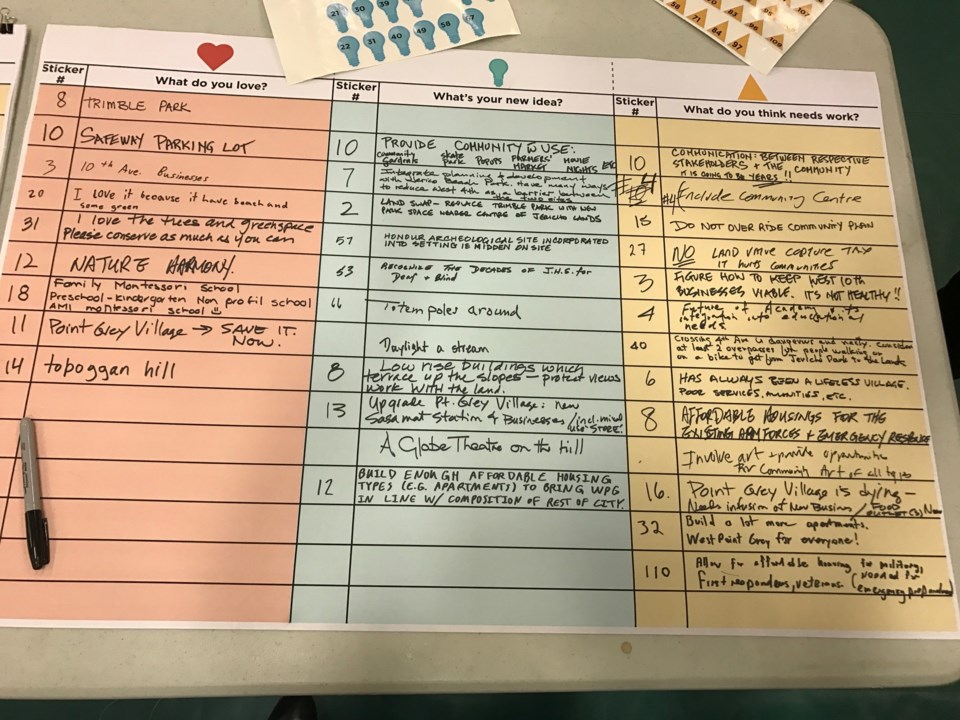 21 30 39
22 31 40 49 58 67
58 71 84 97
107
109
Sticker #
What do you love?
8 TRIMBLE PARK
10 SAFEWAY PARKING LOT
3 10th Ave. Businesses
20 I love it because it have beach and
some green
31 I love the trees and greenspace
Please conserve as much as you can
12 NATURE HARMONY.
18 Family Montessori school
Preschool-Kindergarten Non profit school
AMI montessori school
11 Point Grey Village → SAVE IT.
NOW.
14 toboggan hill
Sticker #
What's your new idea?
10 PROVIDE COMMUNITY USE:
community skate Popups FARMERS' MOVIE ETC
Gardens Park MARKET NIGHTS
7 Integrate planning & development
with Jericho Beach Park. Have many ways
to reduce West 4th as a barrier between
the two sites
2 LAND SWAP - REPLACE TRIMBLE PARK WITH NEW
PARK SPACE NEARER CENTRE OF JERICHO LANDS
57 HONOUR ARCHEOLOGICAL SITE INCORPORATED
INTO SETTING IE MIDDEN ON SITE
53 RECOGNIZE THE DECADES OF J.H.S. for
Deaf & Blind
66 Totem poles around
Daylight a stream
8 Low rise buildings which
terrace up the slopes - protect views
work with the land.
13 Upgrade Pt. Grey Village: new
Sasamat Station & Businesses / incl. mixed
use STORE.
A Globe Theatre on the hill
12 BUILD ENOUGH AFFORDABLE HOUSING
TYPES (E.G. APARTMENTS) TO BRING WPG
IN LINE W/ COMPOSITION OF REST OF CITY.
Sticker #
What do you think needs work?
10 COMMUNICATION: BETWEEN RESPECTIVE
STAKEHOLDERS & THE COMMUNITY
IT IS GOING TO BE YEARS!!
#4 Include Community Centre
15 DO NOT OVER RIDE COMMUNITY PLAN
27 NO LAND VALUE CAPTURE TAX
IT HURTS COMMUNITIES
3 FIGURE HOW TO KEEP WEST 10th
BUSINESSES VIABLE. IT'S NOT HEALTHY!!
4 Future of Academy its
integration into educational
needs
40 Crossing 4th Ave is dangerous and nasty. Consider
at least 2 overpasses let people walking or
on a bike to get from Jericho Park to the Lands
6 HAS ALWAYS BEEN A LIFELESS VILLAGE.
POOR SERVICES, AMENITIES, ETC.
8 AFFORDABLE HOUSINGS FOR THE
EXISTING ARM FORCES & EMERGENCY RESPONSE
Involve art & provide opportunities
for Community Art of all types
16. Point Grey Village is dying -
Needs infusion of New Business / FOOD
OUTLET(S) Now
32 Build a lot more apartments.
West Point Grey for everyone!
110 Allow for affordable housing for military,
first responders, veterans (needed for
emergency preparedness